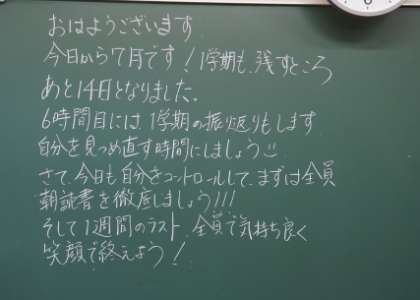 おはようございます
今日から7月です!1学期も、残すところ
あと14日となりました。
6時間目には、1学期の振り返りもします
自分を見つめ直す時間にしましょう!!
さて、今日も自分をコントロールして、まずは全員
朝読書を徹底しましょう!!!
そして1週間のラスト、全員で気持ち良く
笑顔で終えよう!